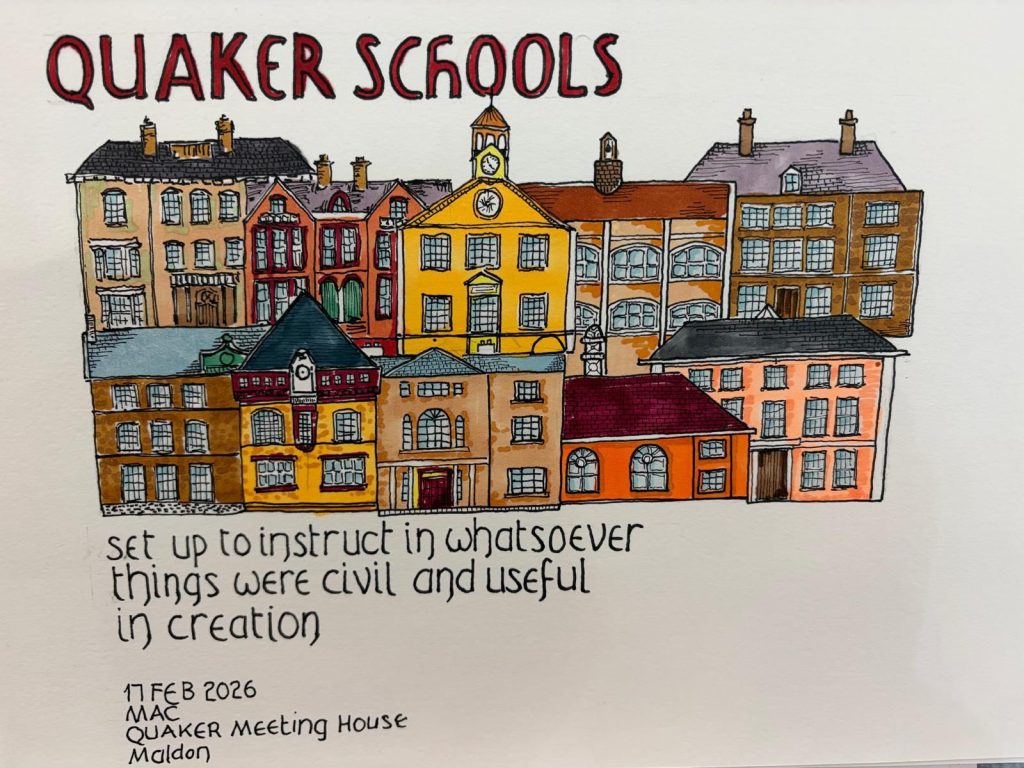 QUAKER SCHOOLS
set up to instruct in whatsoever
things were civil and useful
in creation
17 FEB 2026
MAC
QUAKER Meeting House
Maldon